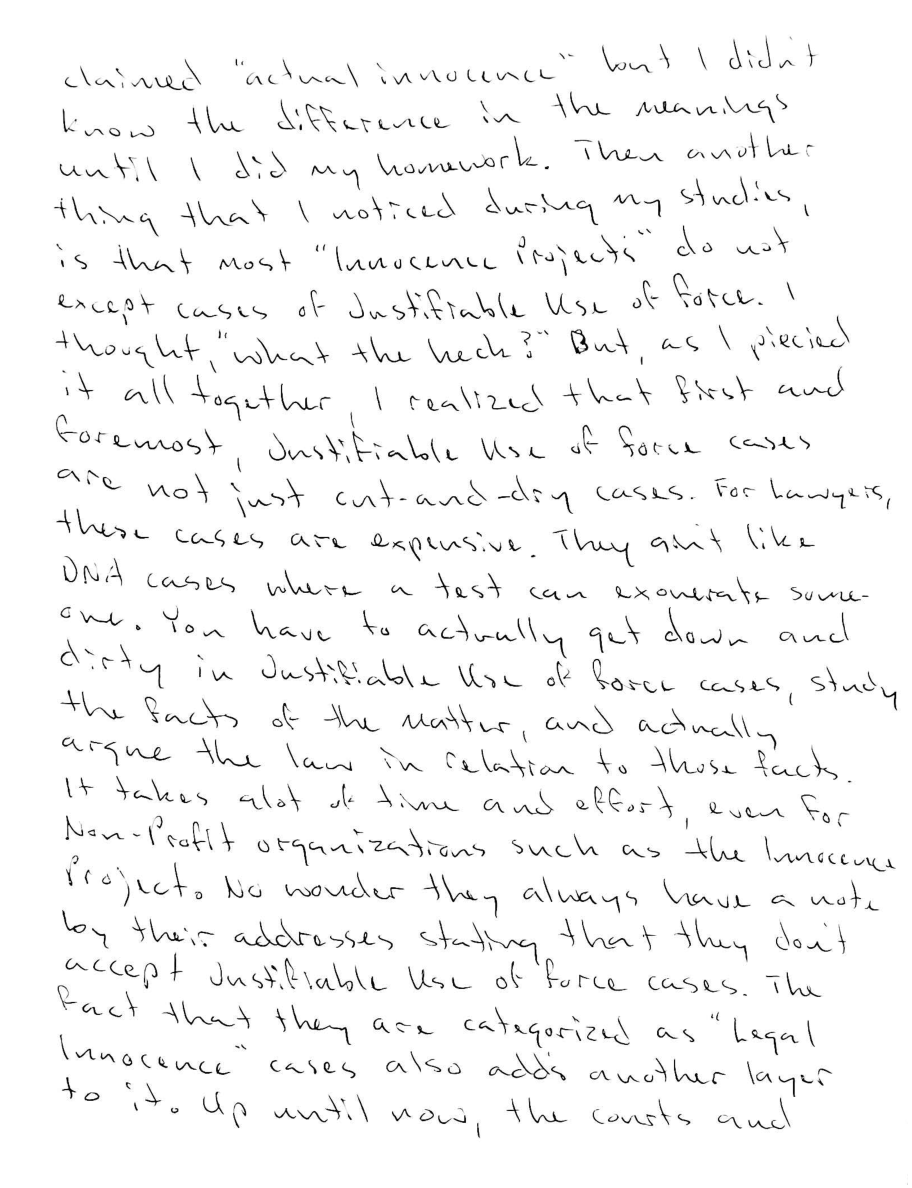 claimed "actual innocence" but I didn't
know the difference in the meanings
until I did my homework. Then another
thing that I noticed during my studies,
is that most "Innocence Projects" do not
except cases of Justifiable Use of force. I
thought, "what the heck?" But, as I piecied
it all together, I realized that first and
foremost, Justifiable Use of force cases
are not just cut-and-dry cases. For Lawyers,
these cases are expensive. They ain't like
DNA cases where a test can exonerate some-
one. You have to actually get down and
dirty in Justifiable Use of force cases, study
the facts of the matter, and actually
argue the law in relation to those facts.
It takes alot of time and effort, even for
Non-Profit organizations such as the Innocence
Project. No wonder they always have a note
by their addresses stating that they don't
accept Justifiable Use of force cases. The
fact that they are categorized as "Legal
Innocence" cases also adds another layer
to it. Up until now, the courts and